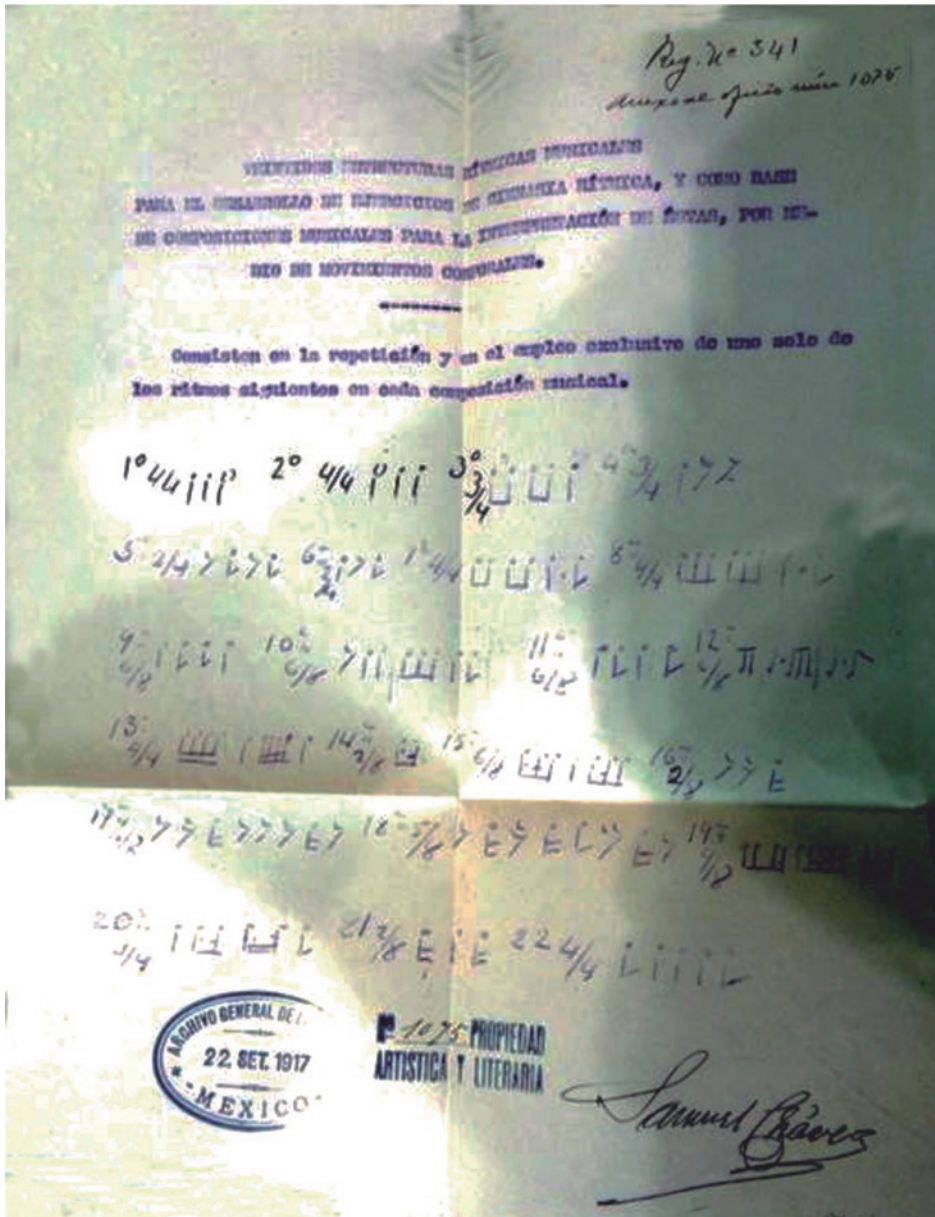 Reg. Nº 341
anexo al oficio núm 1075
VEINTIDOS ESTRUCTURAS RÍTMICAS MUSICALES
PARA EL DESARROLLO DE EJERCICIOS DE GIMNASIA RÍTMICA, Y COMO BASE
DE COMPOSICIONES MUSICALES PARA LA INTERPRETACIÓN DE ÉSTAS, POR ME-
DIO DE MOVIMIENTOS CORPORALES.
Consisten en la repetición y en el empleo exclusivo de uno solo de
los ritmos siguientes en cada composición musical.
1º 4/4 2º 4/4 3º 3/4 4º 3/4
5º 2/4 6º 8º 4/4
9º 6/8 10º 6/8 11º 6/8 12º 6/8
13º 4/4 14º 2/8 15º 6/8 16º 2/8
17º 18º 19º 6/8
20º 3/4 21 2/8 22 4/4
ARCHIVO GENERAL DE
22. SET. 1917
MEXICO
1075 PROPIEDAD
ARTISTICA Y LITERARIA
Samuel Chávez